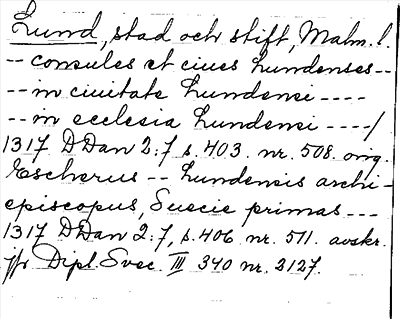 Lund, stad och stift, Malm. l.
-- consules et ciues Lundenses --
-- in ciuitate Lundensi ----
-- in ecclesia Lundensi ----/
1317 DDan 2:7 s. 403. nr. 508. orig.
Escherus -- Lundensis archi-
episcopus, Suecie primas ---
1317 DDan 2:7, s. 406 nr. 511. avskr.
jfr Dipl. Svec. III 340 nr. 2127.